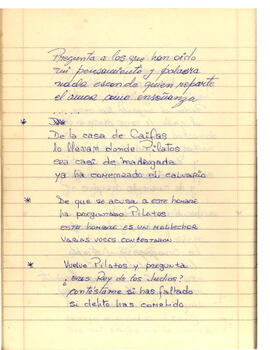 Pregunta a los que han oido
mi pensamiento y palabra
nada esconde quien reparte
el amor como enseñanza
......
*
De la casa de Caifas
lo llevan donde Pilatos
era casi de madrugada
ya ha comenzado el calvario
* De que se acusa a este hombre
ha preguntado Pilatos
este hombre es un malhechor
varias voces contestaron
* Vuelve Pilatos y pregunta
¿Eres Rey de los Judios?
contéstame si has fallado
si delito has cometido